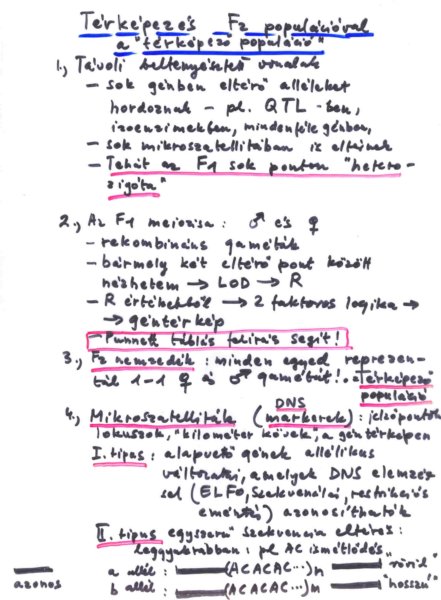 Térképezés F2 populációval
a "térképező populáció"
1., Távoli beltenyésztett vonalak
– sok génben eltérő alléleket
hordoznak – pl. QTL-ben,
izoenzimekben, mindenféle génben,
– sok mikroszatellitában is eltérnek
– Tehát az F1 sok ponton "hetero-
zigóta"
2., Az F1 meiózisa: ♂ és ♀
– rekombináns gaméták
– bármely két eltérő pont között
nézhetem → LOD → R
– R értékekből → 2 faktoros logika →
→ géntérkép
– Punnett táblás felírás segít!
3., F2 nemzedék: minden egyed reprezen-
tál 1-1 ♀ és ♂ gamétát! . . Térképező
populáció
DNS
4., Mikroszatelliták (markerek): jelzőpontok
lokuszok, "kilométer kövek", a géntérképen
I. típus: alapvető gének allélikus
változatai, amelyek DNS elemzés-
sel (ELFO, szekvenálás, restrikciós
emésztés) azonosíthatók
II. típus egyszerű szekvencia eltérés:
leggyakrabban: pl AC ismétlődés
a allél: (ACACAC...)n "rövid"
azonos b allél: (ACACAC...)m "hosszú"